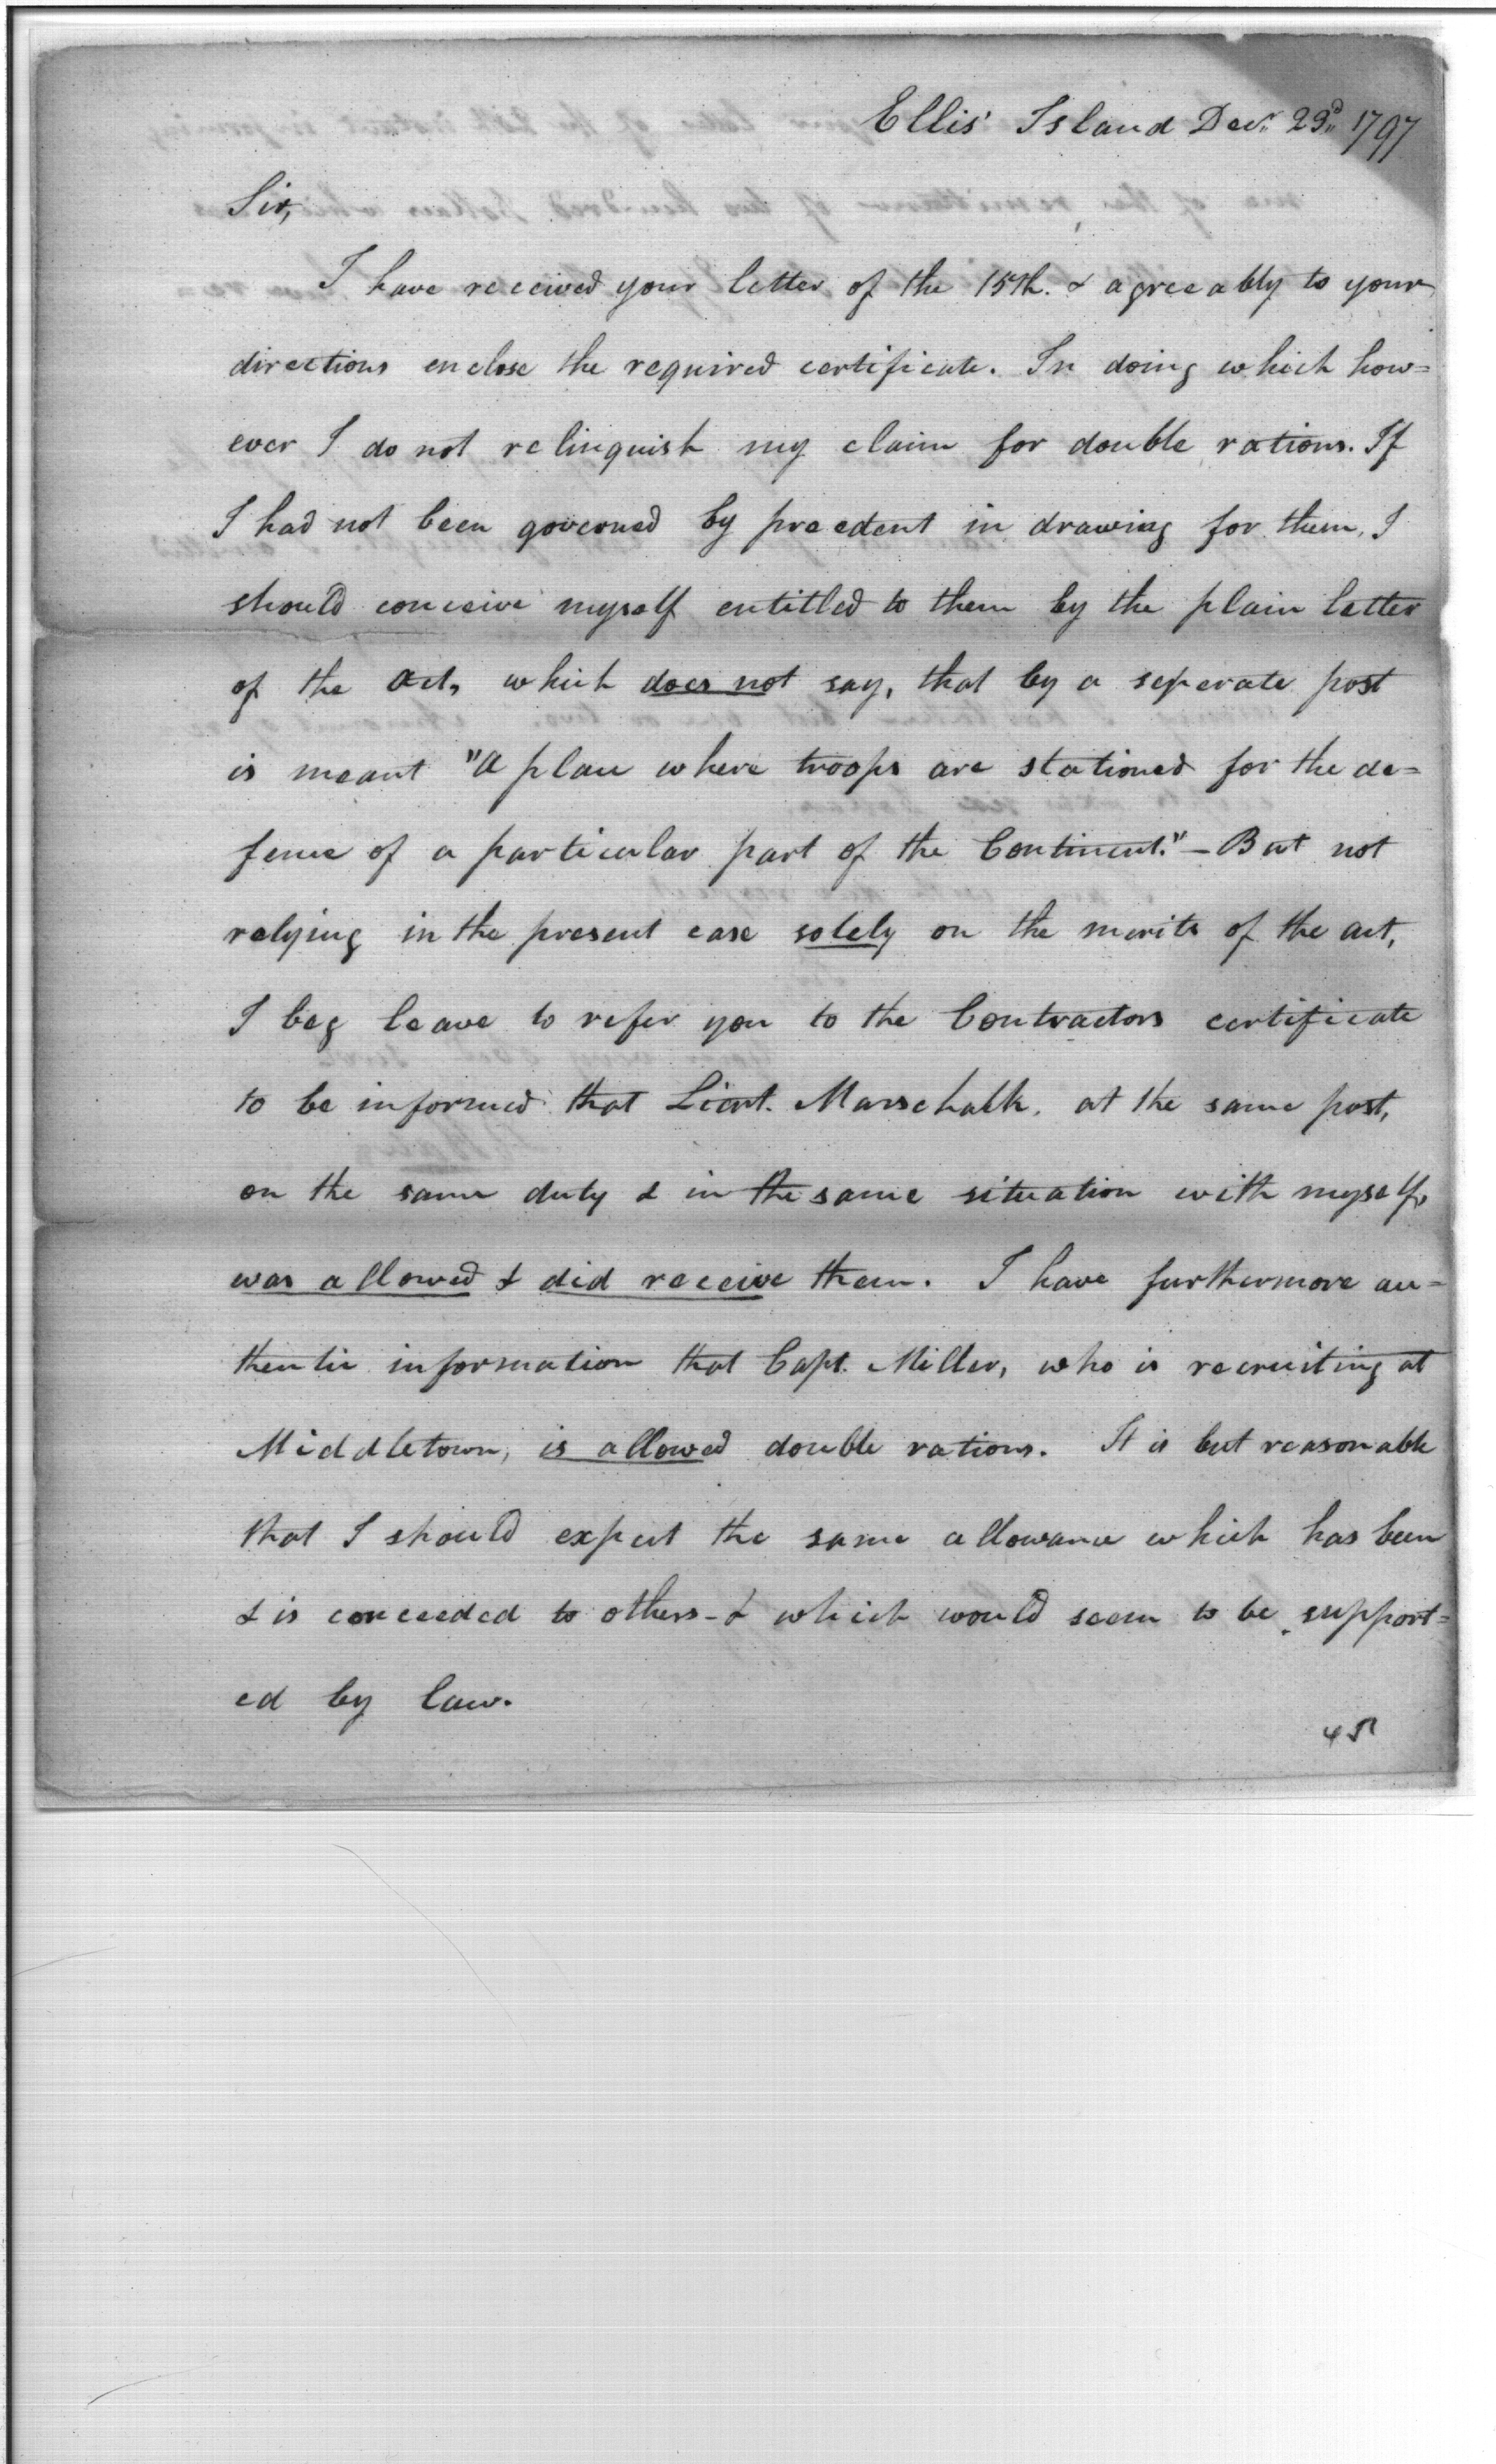 Ellis' Island Decr. 23d. 1797
Sir,
I have received your letter of the 15th. & agreeably to your
directions enclose the required certificate. In doing which how=
ever I do not relinquish my claim for double rations. If
I had not been governed by precedent in drawing for them, I
should conceive myself entitled to them by the plain letter
of the Act, which does not say, that by a seperate post
is meant "A place where troops are stationed for the de=
fence of a particular part of the Continent."–But not
relying in the present case solely on the merits of the act,
I beg leave to refer you to the Contractors certificate
to be informed that Lieut. Marschalk, at the same post,
on the same duty & in the same situation with myself,
was allowed & did receive them. I have furthermore au=
thentic information that Capt. Miller, who is recruiting at
Middletown, is allowed double rations. It is but reasonable
that I should expect the same allowance which has been
& is conceeded to others–& which would seem to be support=
ed by law.